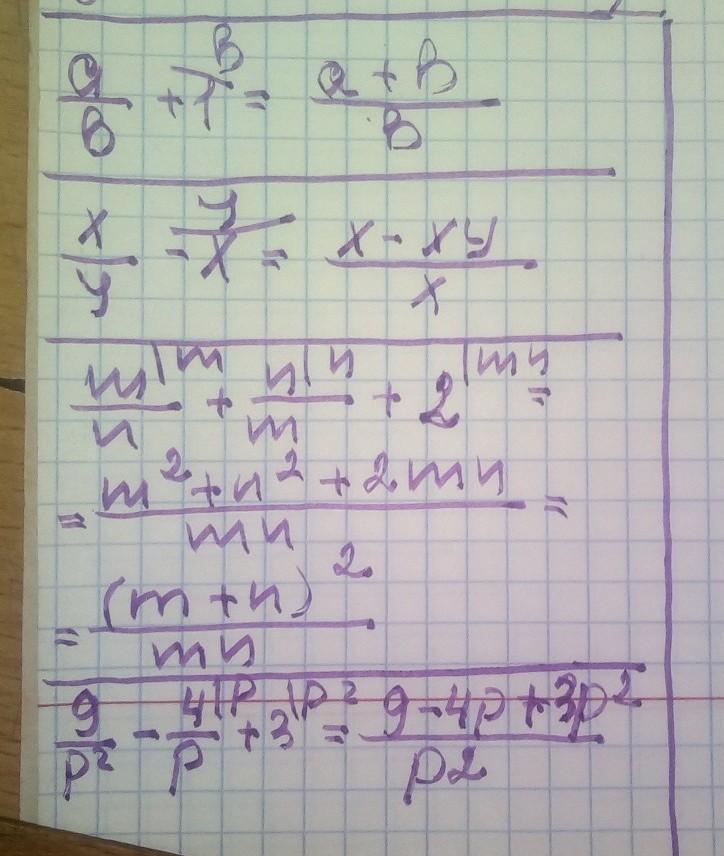 a/в + в/1 = (a + в)/в
x/y - y/x = (x - xy)/x
m/n|m + n/m|n + 2|mn =
= (m² + n² + 2mn)/mn =
= (m + n)²/mn
9/p² - 4/p|p + 3|p² = (9 - 4p + 3p²)/p2